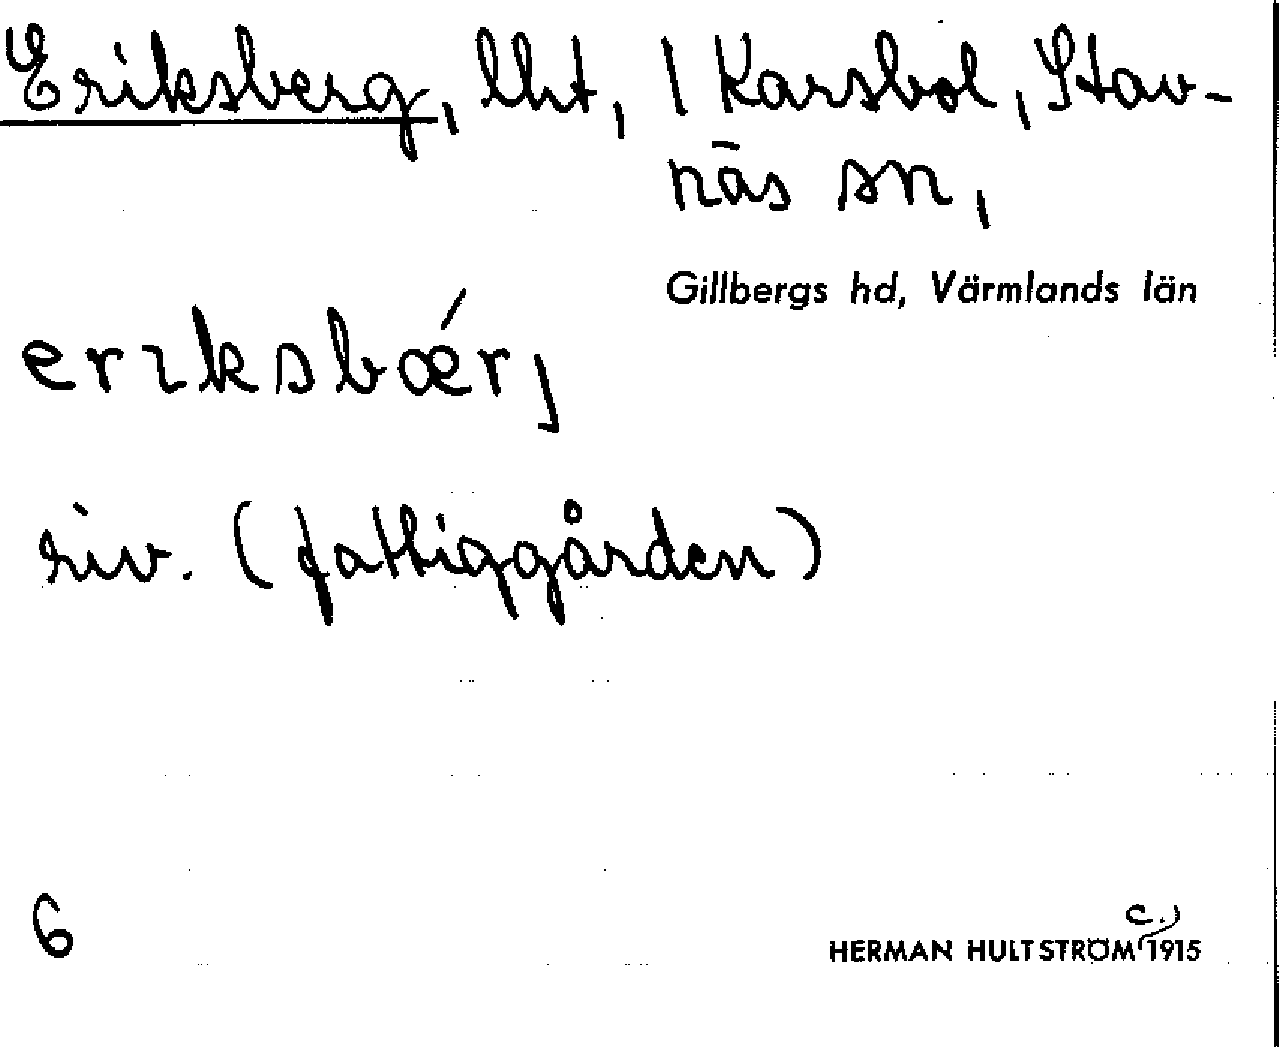 Eriksberg, lht, 1 Karsbol, Stav-
näs sn,
Gillbergs hd, Värmlands län
erıksbǽrȷ
riv. (fattiggården)
6
c.)
HERMAN HULTSTRÖM 1915